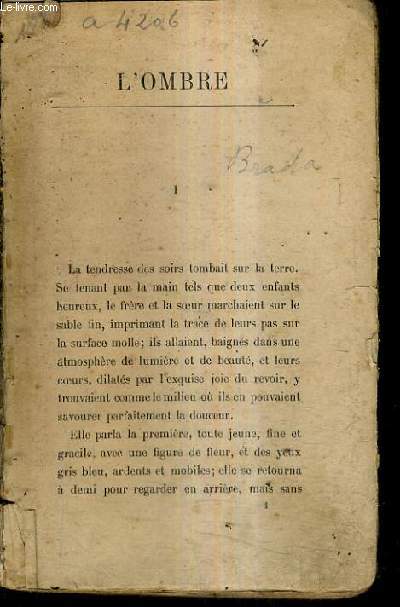 Le-livre.com
a 4206
L'OMBRE
Brada
I
La tendresse des soirs tombait sur la terre.
Se tenant par la main tels que deux enfants
heureux, le frère et la sœur marchaient sur le
sable fin, imprimant la trace de leurs pas sur
la surface molle; ils allaient, baignés dans une
atmosphère de lumière et de beauté, et leurs
cœurs, dilatés par l'exquise joie du revoir, y
trouvaient comme le milieu où ils en pouvaient
savourer parfaitement la douceur.
Elle parla la première, toute jeune, fine et
gracile, avec une figure de fleur, et des yeux
gris bleu, ardents et mobiles; elle se retourna
à demi pour regarder en arrière, mais sans
1